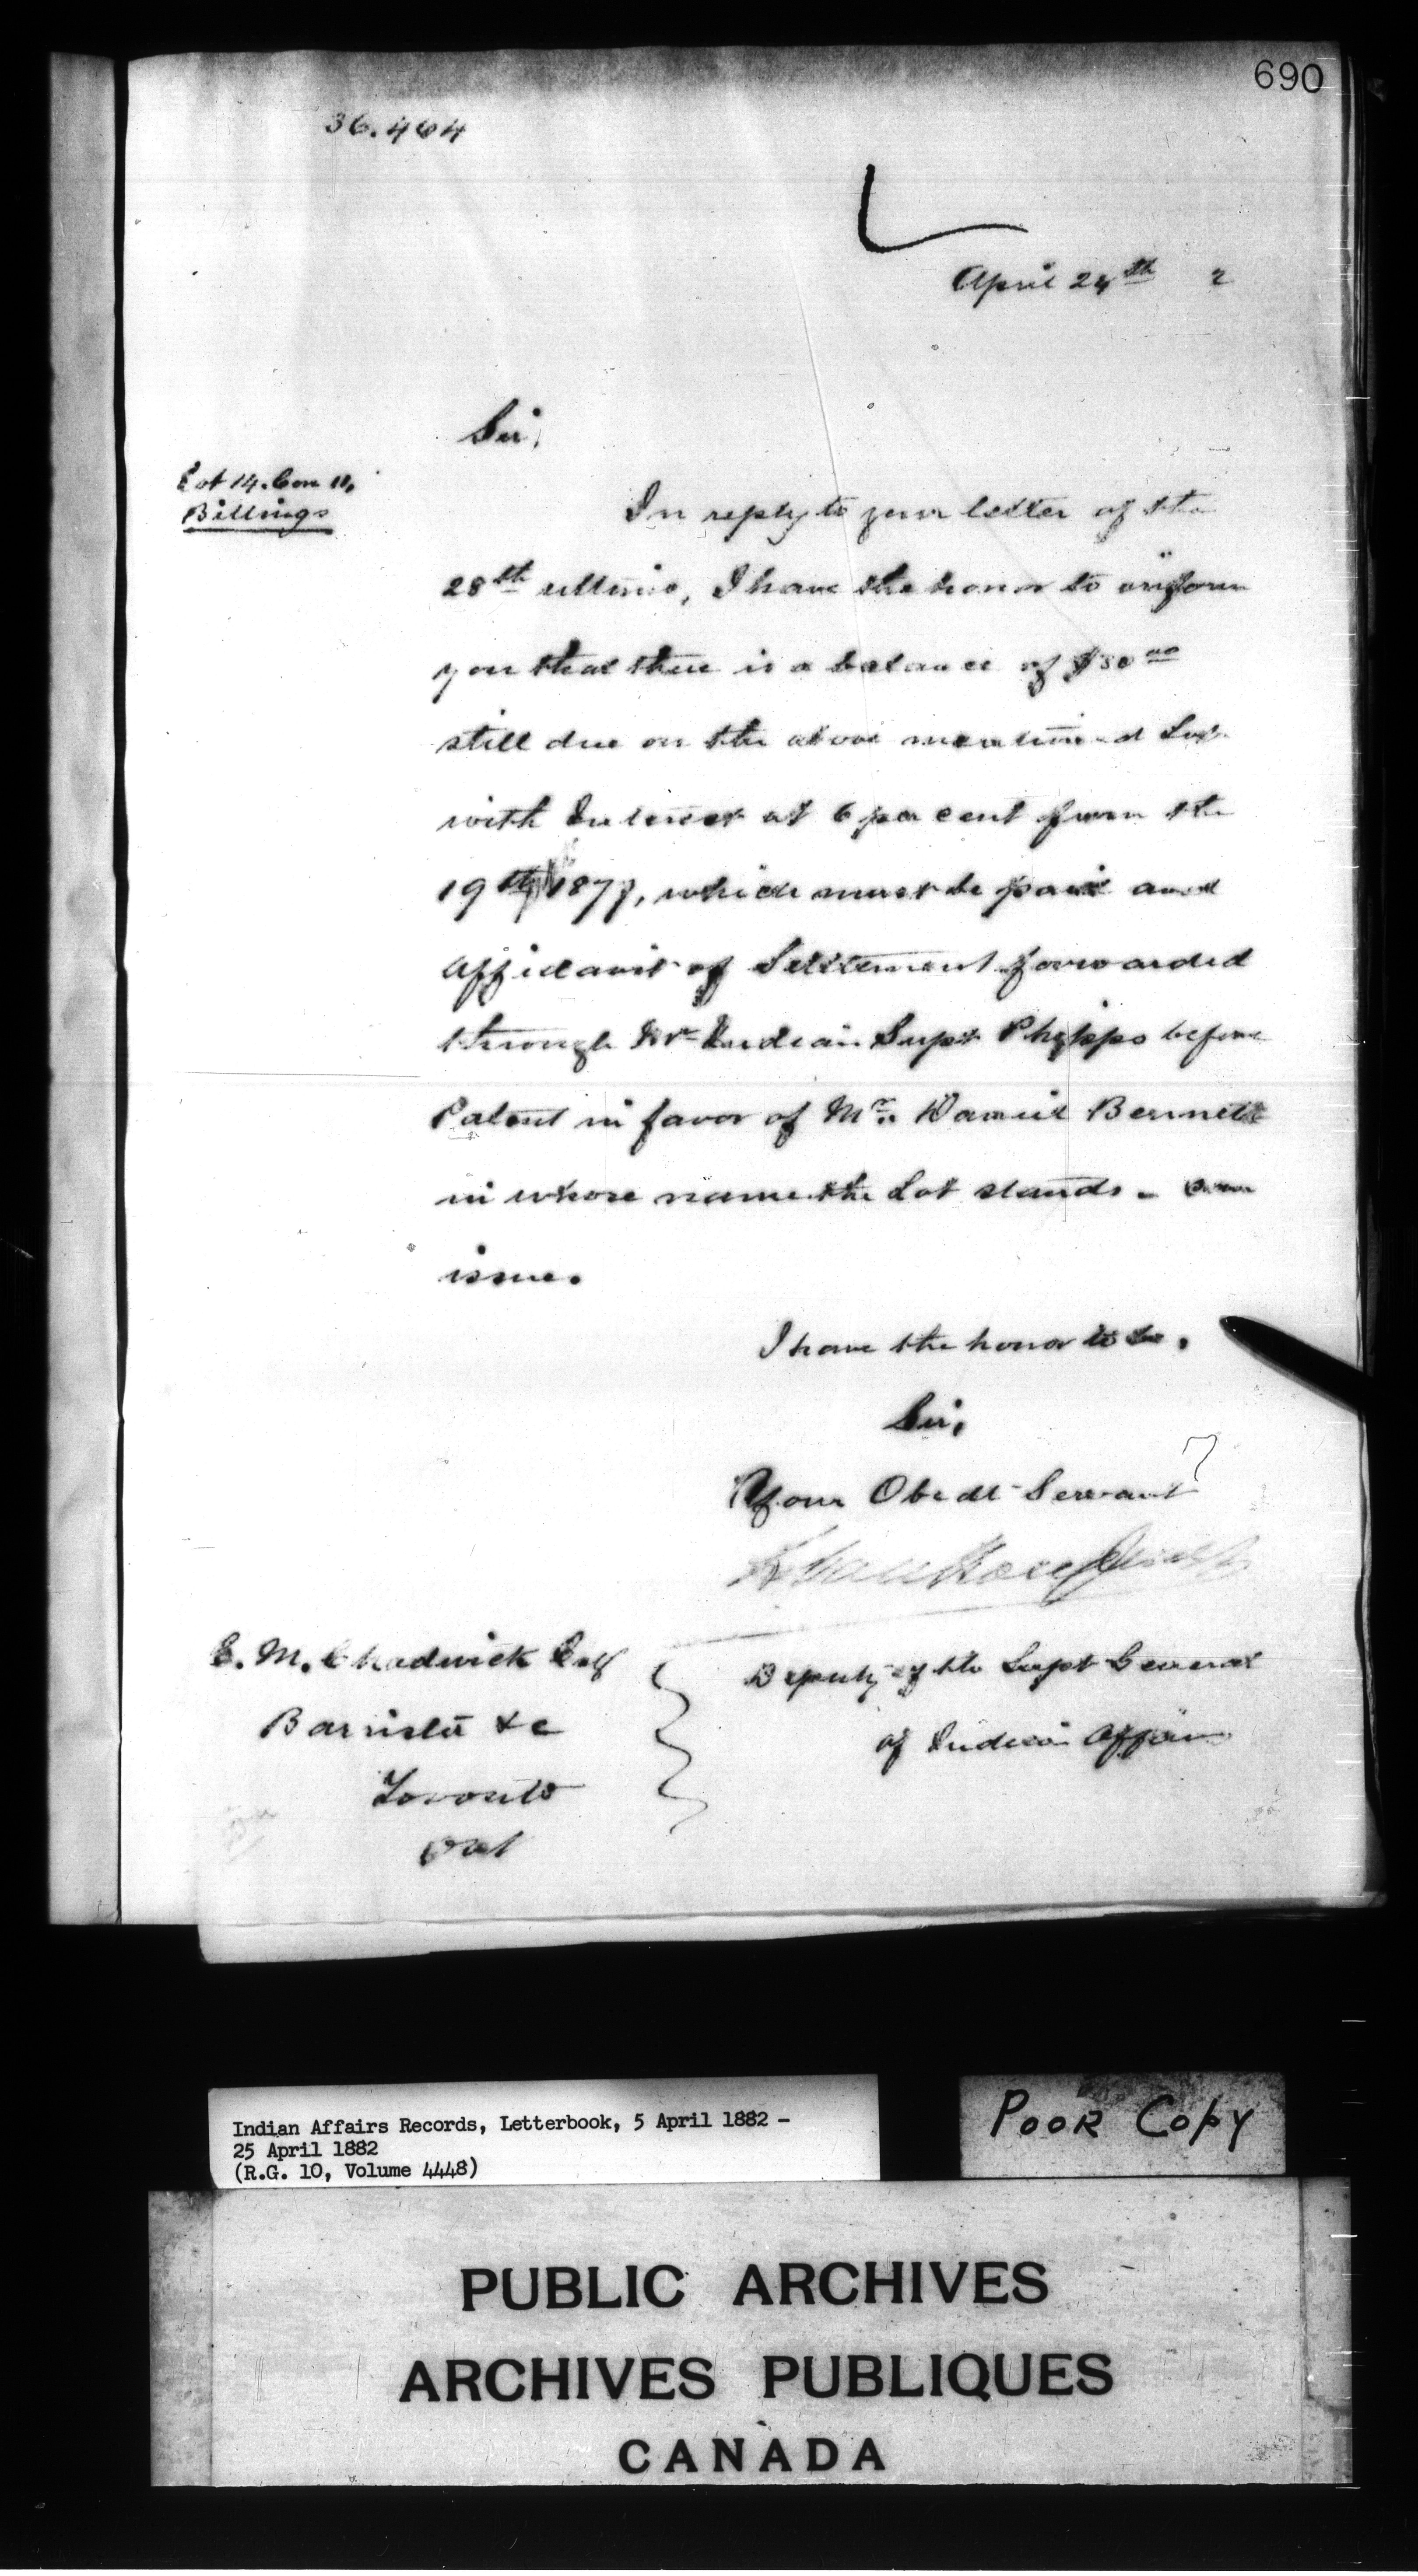 690
36.464
April 24th 2
Sir,
Lot 14. Con 11,
Billings
In reply to your letter of the
28th ultimo, I have the honor to inform
you that there is a balance of $30 00
still due on the above mentioned Lot
with Interest at 6 per cent from the
19th 1877, which must be paid and
Affidavit of Settlement forwarded
through Mr Indian Supt Phipps before
Patent in favor of Mr. Daniel Bennett
in whose name the Lot stands - can
issue.
I have the honor to be,
Sir,
Your Obedt Servant
Deputy of the Supt General
of Indian Affairs
E. M. Chadwick Esq
Barrister &c
Toronto
Ont
Indian Affairs Records, Letterbook, 5 April 1882 -
25 April 1882
(R.G. 10, Volume 4448)
POOR COPY
PUBLIC ARCHIVES
ARCHIVES PUBLIQUES
CANADA